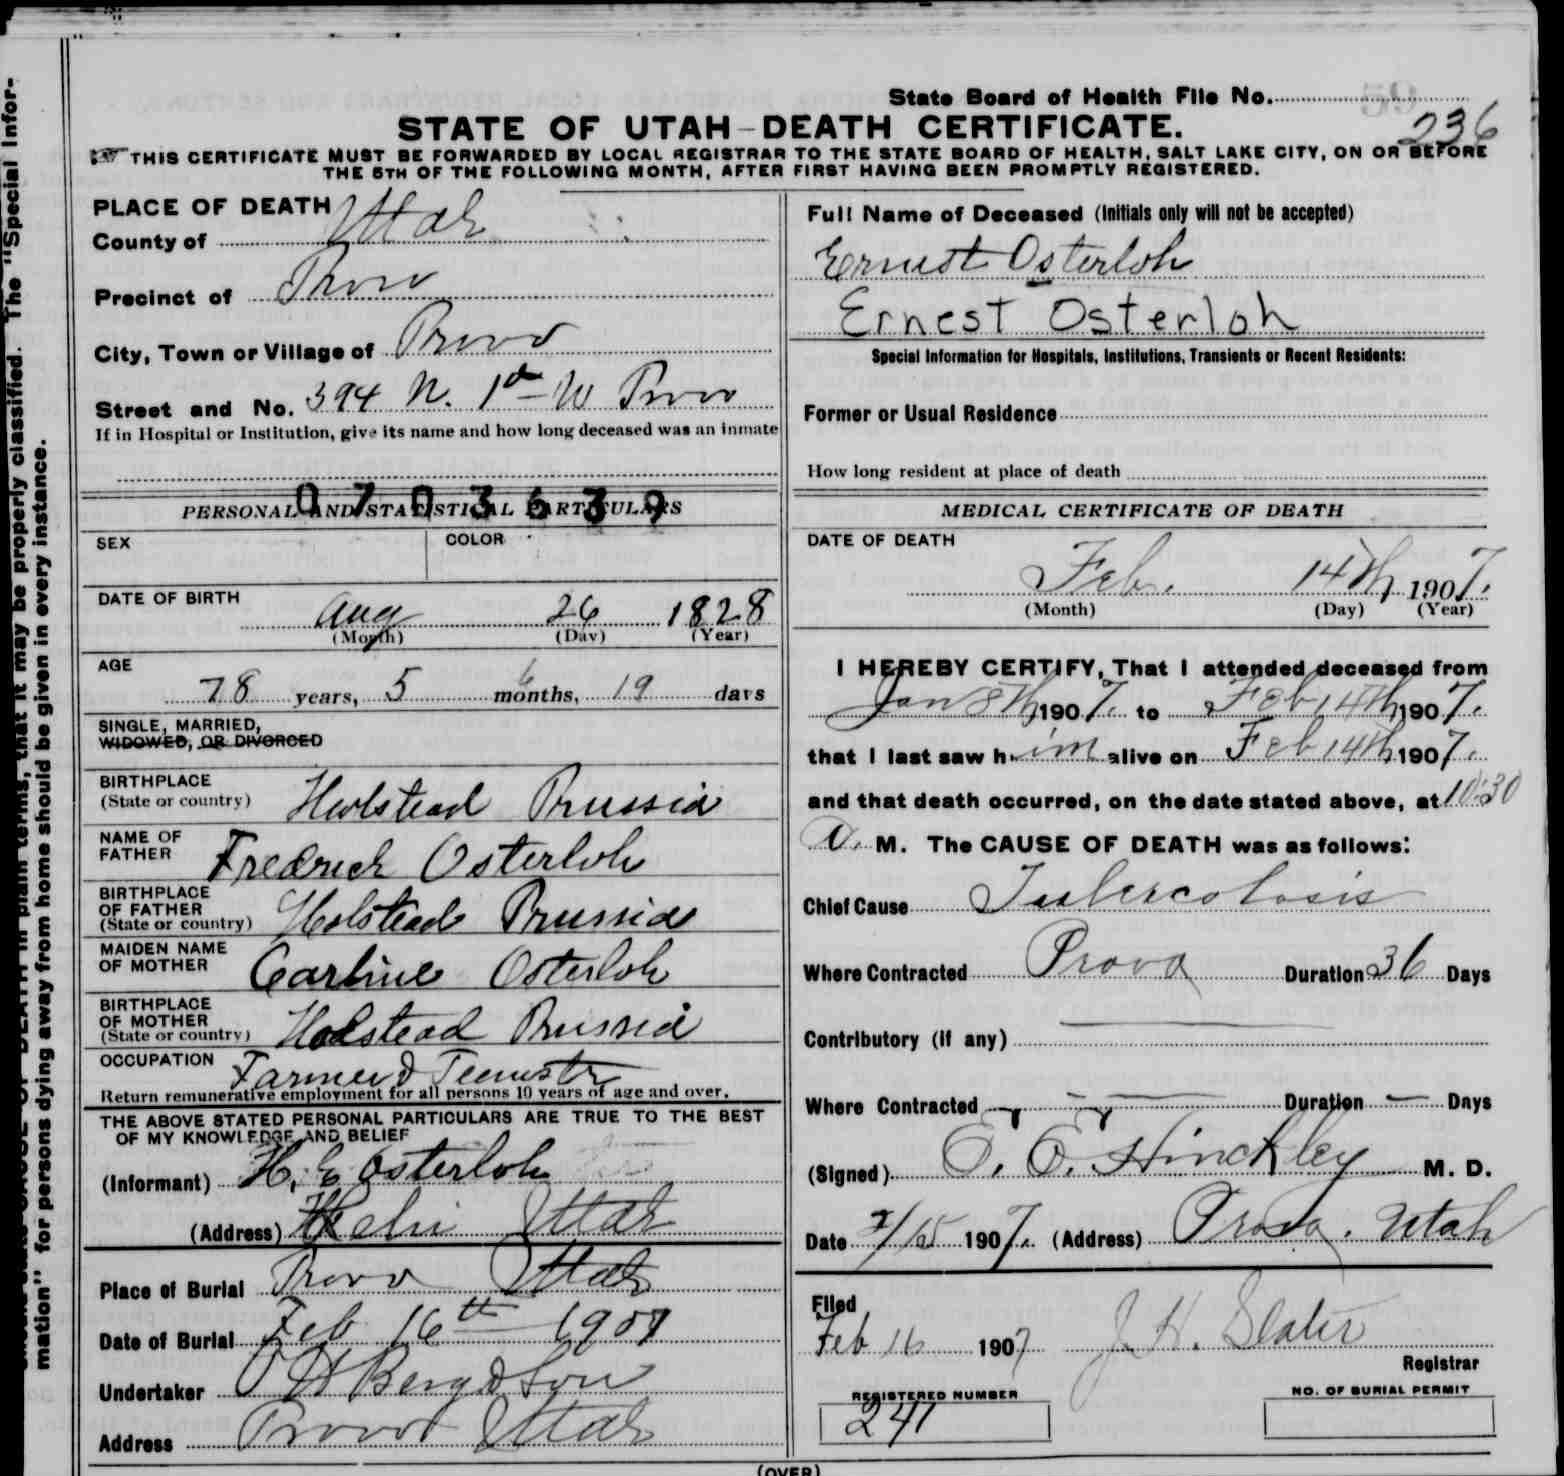 State Board of Health File No.
236
STATE OF UTAH-DEATH CERTIFICATE.
THIS CERTIFICATE MUST BE FORWARDED BY LOCAL REGISTRAR TO THE STATE BOARD OF HEALTH, SALT LAKE CITY, ON OR BEFORE
THE 5TH OF THE FOLLOWING MONTH, AFTER FIRST HAVING BEEN PROMPTLY REGISTERED.
PLACE OF DEATH
County of Utah
Precinct of Provo
City, Town or Village of Provo
Street and No. 394 N. 1st W Provo
If in Hospital or Institution, give its name and how long deceased was an inmate
0703639
PERSONAL AND STATISTICAL PARTICULARS
SEX COLOR
DATE OF BIRTH
Aug 26 1828
(Month) (Day) (Year)
AGE
78 years, 5 months, 19 days
SINGLE, MARRIED,
WIDOWED, OR DIVORCED
BIRTHPLACE
(State or country) Holstead Prussia
NAME OF
FATHER Fredrick Osterloh
BIRTHPLACE
OF FATHER
(State or country) Holstead Prussia
MAIDEN NAME
OF MOTHER Carline Osterloh
BIRTHPLACE
OF MOTHER
(State or country) Holstead Prussia
OCCUPATION Farmer &
Return remunerative employment for all persons 10 years of age and over.
THE ABOVE STATED PERSONAL PARTICULARS ARE TRUE TO THE BEST
OF MY KNOWLEDGE AND BELIEF
(Informant) H. E Osterloh
(Address) Utah
Place of Burial Provo Utah
Date of Burial Feb 16th 1907
Undertaker O H Berg & Son
Address Provo Utah
Full Name of Deceased (Initials only will not be accepted)
Ernest Osterloh
Ernest Osterloh
Special Information for Hospitals, Institutions, Transients or Recent Residents:
Former or Usual Residence
How long resident at place of death
MEDICAL CERTIFICATE OF DEATH
DATE OF DEATH
Feb. 14th 1907.
(Month) (Day) (Year)
I HEREBY CERTIFY, That I attended deceased from
Jan 8th 1907. to Feb 14th 1907.
that I last saw him alive on Feb 14th 1907.
and that death occurred, on the date stated above, at 10:30
M. The CAUSE OF DEATH was as follows:
Chief Cause Tubercolosis
Where Contracted Provo Duration 36 Days
Contributory (if any)
Where Contracted Duration — Days
(Signed) E. E. Hinckley M. D.
Date 2/15 1907. (Address) Provo. Utah
Filed
Feb 16 1907 J. H. Slater
Registrar
REGISTERED NUMBER
241
NO. OF BURIAL PERMIT
(OVER)
mation" for persons dying away from home should be given in every instance.
CAUSE OF DEATH in plain terms, that it may be properly classified. The "Special Infor-